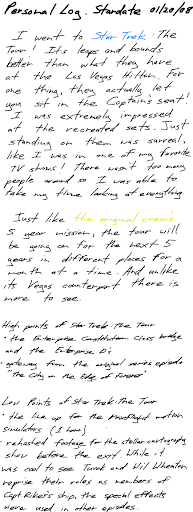 Personal Log. Stardate 01/20/08
I went to Star Trek: The
Tour! Its leaps and bounds
better than what they have
at the Las Vegas Hilton. For
one thing, they actually let
you sit in the Captains seat!
I was extremely impressed
at the recreated sets. Just
standing on them was surreal,
like I was in one of my favorite
TV shows! There wasn't too many
people around so I was able to
take my time looking at everything
Just like the original crew's
5 year mission, the tour will
be going on for the next 5
years in different places for a
month at a time. And unlike
its Vegas counterpart there is
more to see.
High points of Star Trek: The Tour
• the Enterprise Constitution Class bridge
and the Enterprise D's
• gateway from the original series episode
"The City on the Edge of Forever"
Low Points of Star Trek: The Tour
• the line up for the flight motion
simulators (1 hour)
• rehashed footage for the stellar cartography
show before the exit. While it
was cool to see Tuvok and Wil Wheaton
reprise their roles as members of
Capt Riker's ship, the special effects
were used in other episodes.